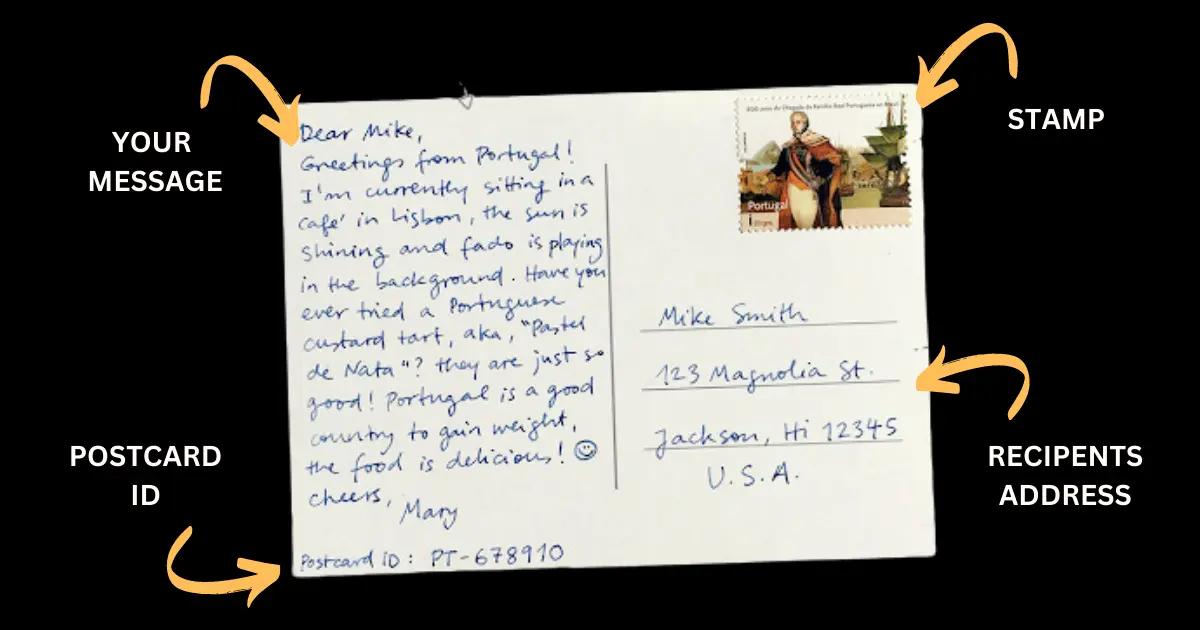 YOUR
MESSAGE
STAMP
POSTCARD
ID
RECIPENTS
ADDRESS
Dear Mike,
Greetings from Portugal!
I'm currently sitting in a
café in Lisbon, the sun is
shining and fado is playing
in the background. Have you
ever tried a Portuguese
custard tart, aka, "Pastel
de Nata"? they are just so
good! Portugal is a good
country to gain weight,
the food is delicious! ☺
cheers,
Mary
Postcard ID: PT-678910
Portugal
Mike Smith
123 Magnolia St.
Jackson, Hi 12345
U.S.A.